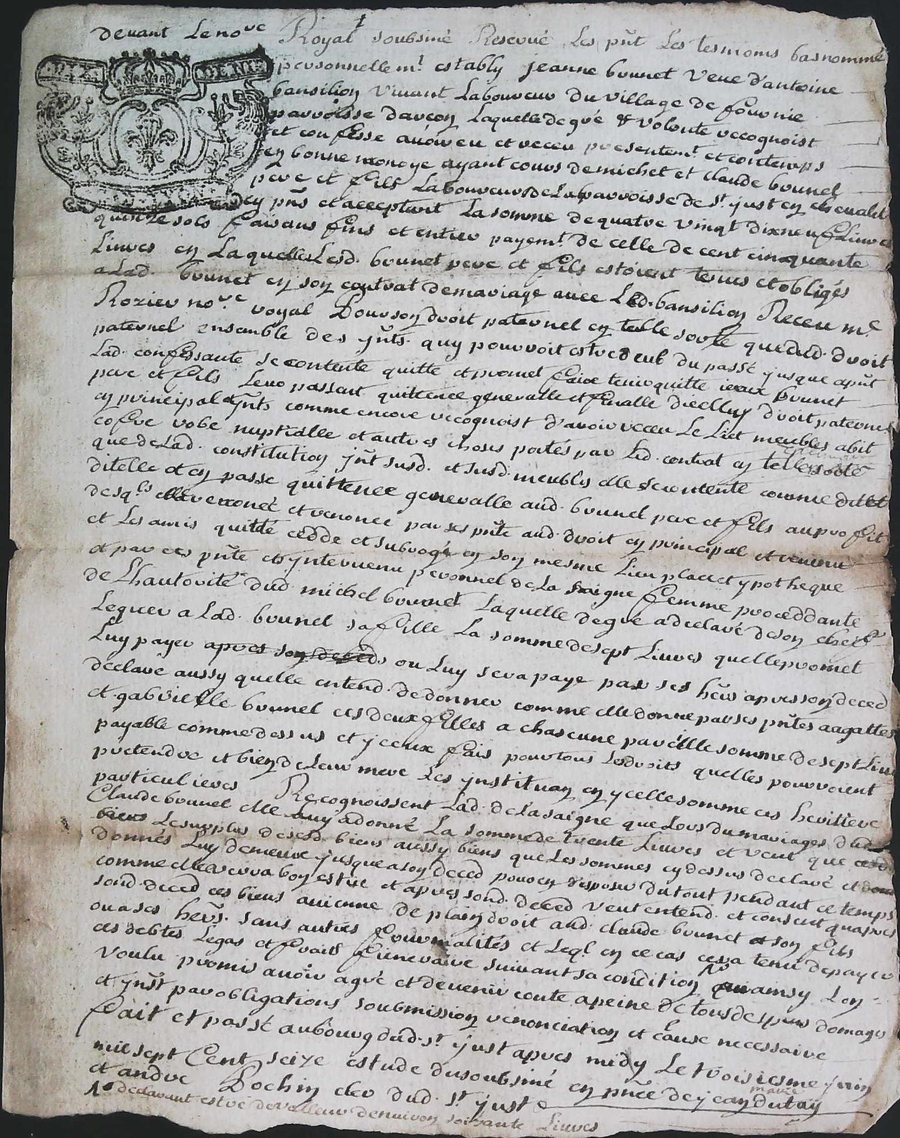 devant Le nore Royal soubsiné Reservé Les pñt Les tesmoins bas nommé
RIE DE NE
personnellemt estably Jeanne brunet veue d'antoine
bansilion vivant Laboureur du village de
parroisse d'arcon Laquelle de gre & volonte recognoist
et confesse avoir eu et receu presentemt et contemps
en bonne monoye ayant cours de michel et claude brunel
pere et fils Laboureurs de La parroisse de st just en chevalet
cy pñs et acceptant La somme de quatre vingt dix neuf Livres
quinze sols faisans fins et entier payemt de celle de cent cinquante
Livres en Laquelle Lesd. brunet pere et fils estoient tenus et obligés
a Lad. brunet en son contrat de mariage avec Led. bansilion Receu me
Rozier nore royal Pour son droit paternel en telle sorte que dud. droit
paternel ensemble des jnts. quy pouvoit estre deub du passé jusque apñt
Lad. confessante se contente quitte et promet faire tenir quitte iceux brunet
pere et fils Leur passant quittence generalle et finalle d'icelluy droit paternel
en principal & jnts comme encore recognoist d'avoir receu Le Lict meubles abit
cofre robe nuptialle et autres choses portés par Led. contrat en telle sorte
que de Lad. constitution jnt susd. et susd. meubles elle se contente comme dit est
d'itelle et en passe quittence generalle aud. brunel pere et fils au profit
desqls elle a renoncé et renonce par ses pñte aud. droit en principal et revenu
et Les a mis quitté cedde et subrogé en son mesme Lieu place et ypotheque
et par ces pñte est yntervenu peronnel de La saigne femme proceddante
de L'hautorité dud michel brunel Laquelle de gre a declaré de son chef
Leguer a Lad. brunel sa fille La somme de sept Livres quelle promet
Luy payer apres son deceds ou Luy sera paye par ses heñs apres son deced
declare aussy quelle entend de donner comme elle donne par ses pñtes a agatte
et gabrielle brunel ces deux filles a chascune pareille somme de sept Livre
payable comme dessus et yceux fais pour tous Les droits quelles pourroient
pretendre et bien de Leur mere Les ynstituan en ycelle somme ces heritiere
particulieres Recognoissent Lad. de La saigne que Lors du mariage dud.
Claude brunel elle Luy a donné La somme de trente Livres et veut que
Le surplus de sesd. biens aussy biens que Les sommes cy dessus declaré et
donnés Luy demeure jusque a son deced pour en disposer du tout pendant ce temps
comme elle verra bon estre et apres sond. deced veut entend. et consent quapres
sond. deced ces biens avienne de plain droit aud. claude brunet et son fils
ou a ses heñs. sans autres fourmalités et Legl. en ce cas cera tenu de payer
ces debtes Legas et frais funeraire suivant sa condition car ainsy L'on
voulu promis avoir agré et devenir conte a peine de tous despans domages
et jnst par obligations soubmission renonciation et Cause necessaire
fait et passé au bourg dud. st just apres midy Le troisiesme juin
mil sept Cent seize estude du soubsiné en pñce de jean dutay
et andre Pochin clerc dud. st just
declarant estre de valleur denviron soixante Livres